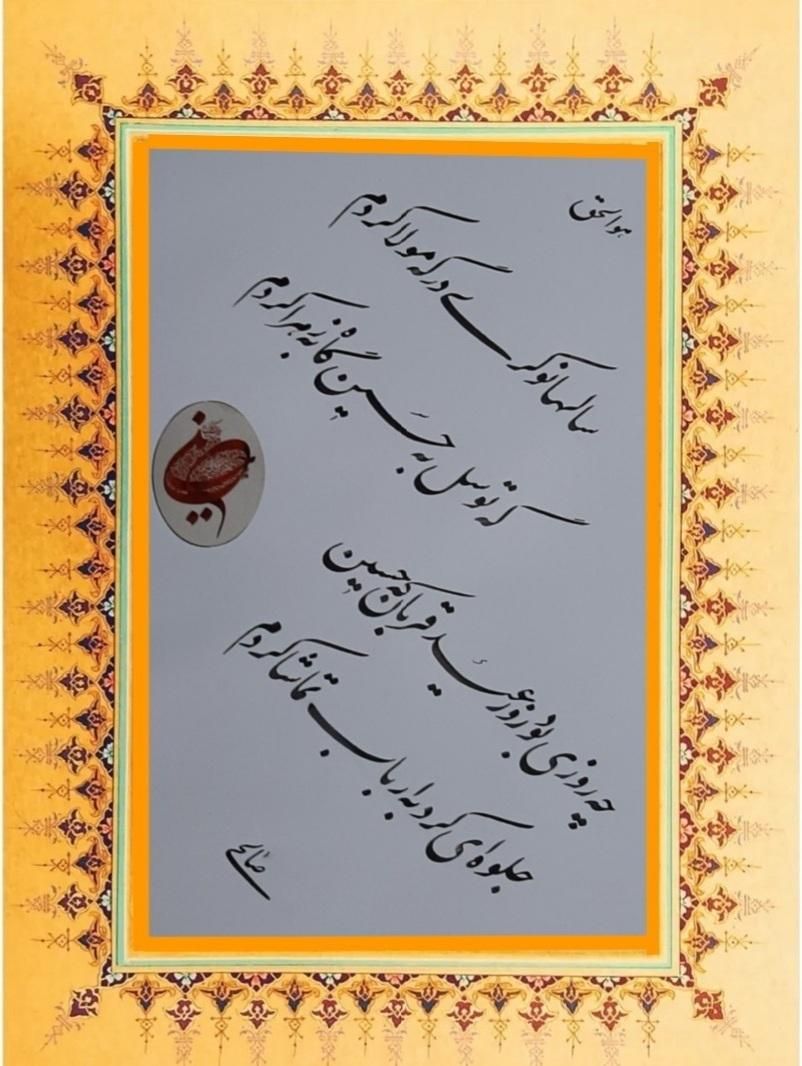 هوالحق
سالها نوکری درگه مولا کردم
گه توسل به حسین گاه به زهرا کردم
چه روزی بود روز عید قربان که حسین
جلوه‌ای کرد به ارباب تماشا کردم
صالحی